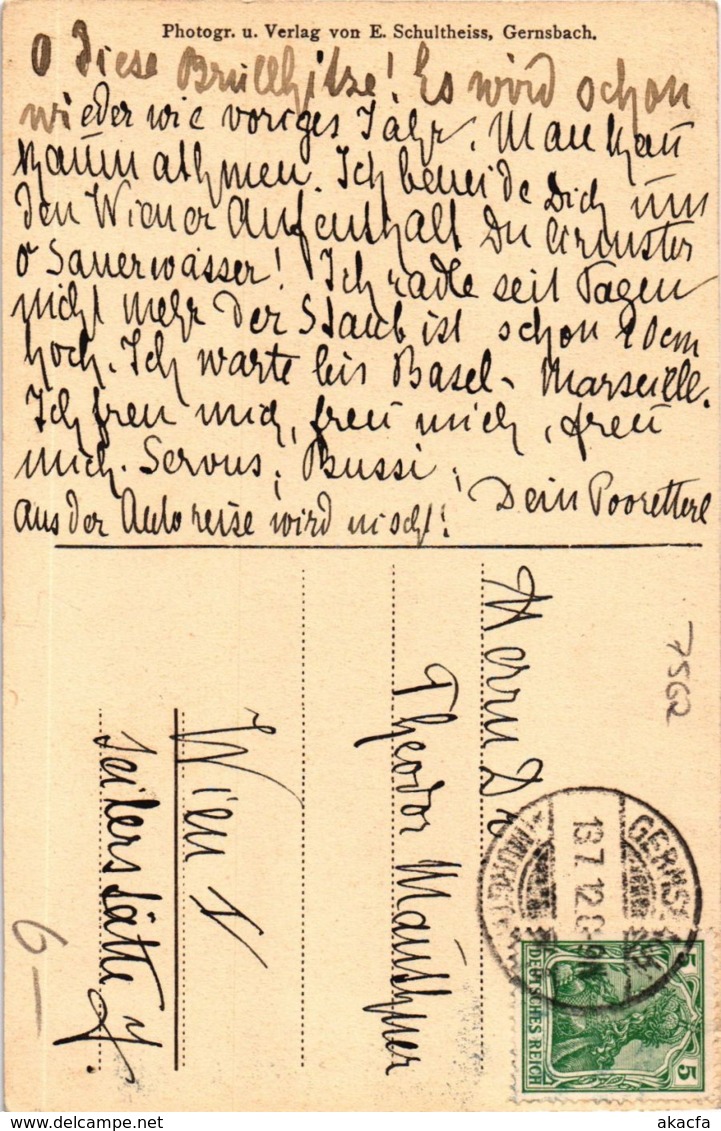 Photogr. u. Verlag von E. Schultheiss, Gernsbach.
O Diese Brüllhitze! Es wird schon
wieder wie voriges Jahr. Man kan
kaum athmen. Ich beneide Dich um
den Wiener Aufenthalt Du
o Sauerwasser! Ich radle seit Tagen
nicht mehr der Staub ist schon 10cm
hoch. Ich warte bis Basel - Marseille.
Ich freu mich, freu mich, freu
mich. Servus, Bussi,
Dein Pooretterl
aus der Autoreise wird nischt!
Herrn Dr
Theodor Mauthner
Wien I
Seilerstätte 7.
7562
6—
GERNSBACH
(MURGTAL)
18.7.12.8-9N
5 5
DEUTSCHES REICH
akacfa
akacfa